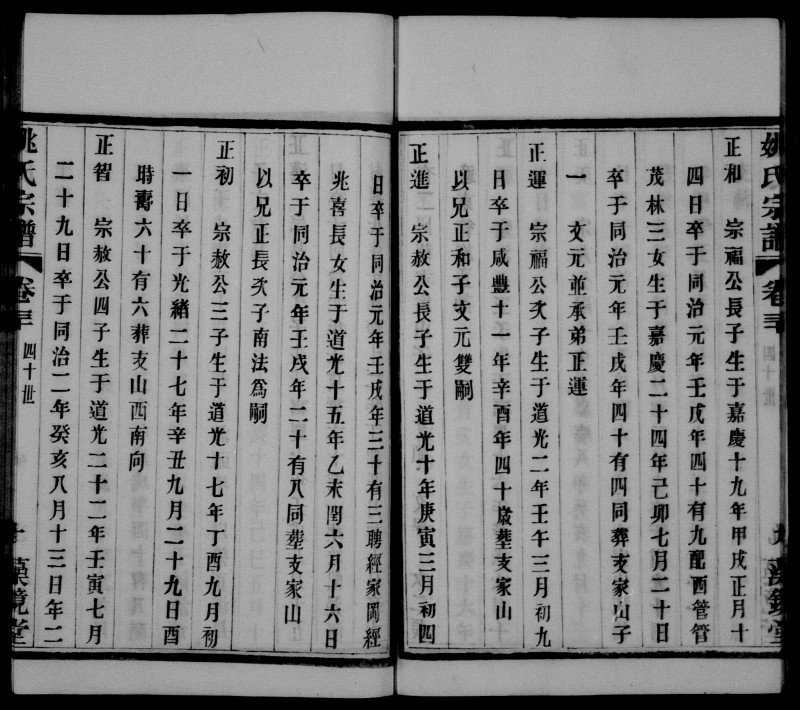 姚氏宗譜
卷三
九
藻鏡堂
正和 宗福公長子生于嘉慶十九年甲戌正月十
四日卒于同治元年壬戌年四十有九配西管管
茂林三女生于嘉慶二十四年己卯七月二十日
卒于同治元年壬戌年四十有四同葬支家山子
一 文元並承弟正運
正運 宗福公次子生于道光二年壬午三月初九
日卒于咸豐十一年辛酉年四十歲葬支家山
以兄正和子文元雙嗣
正進 宗赦公長子生于道光十年庚寅三月初四
日卒于同治元年壬戌年三十有三聘經家岡經
兆喜長女生于道光十五年乙未閏六月十六日
卒于同治元年壬戌年二十有八同葬支家山
以兄正長次子南法爲嗣
正初 宗赦公三子生于道光十七年丁酉九月初
一日卒于光緒二十七年辛丑九月二十九日酉
時壽六十有六葬支山西南向
正智 宗赦公四子生于道光二十二年壬寅七月
二十九日卒于同治二年癸亥八月十三日年二
姚氏宗譜
卷三
四十世
十
藻鏡堂